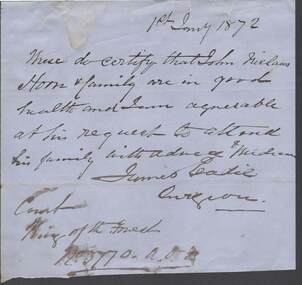 1st Jany 1872
These do certify that John Niclaus
Horn & family are in good
health and I am agreeable
at his request to attend
his family with advice & Medicine
James Eadie
Surgeon
Court
King of the Forest
No 3770 A.O.F